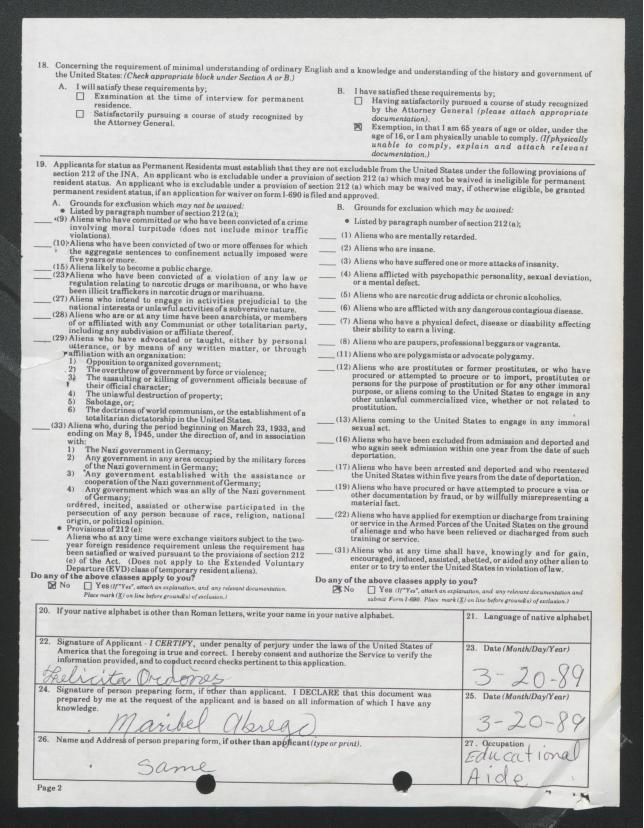 18. Concerning the requirement of minimal understanding of ordinary English and a knowledge and understanding of the history and government of
the United States: (Check appropriate block under Section A or B.)
A. I will satisfy these requirements by;
☐ Examination at the time of interview for permanent
residence.
☐ Satisfactorily pursuing a course of study recognized by
the Attorney General.
B. I have satisfied these requirements by;
☐ Having satisfactorily pursued a course of study recognized
by the Attorney General (please attach appropriate
documentation).
☒ Exemption, in that I am 65 years of age or older, under the
age of 16, or I am physically unable to comply. (If physically
unable to comply, explain and attach relevant
documentation.)
19. Applicants for status as Permanent Residents must establish that they are not excludable from the United States under the following provisions of
section 212 of the INA. An applicant who is excludable under a provision of section 212 (a) which may not be waived is ineligible for permanent
resident status. An applicant who is excludable under a provision of section 212 (a) which may be waived may, if otherwise eligible, be granted
permanent resident status, if an application for waiver on form I-690 is filed and approved.
A. Grounds for exclusion which may not be waived:
● Listed by paragraph number of section 212 (a);
(9) Aliens who have committed or who have been convicted of a crime
involving moral turpitude (does not include minor traffic
violations).
(10) Aliens who have been convicted of two or more offenses for which
the aggregate sentences to confinement actually imposed were
five years or more.
(15) Aliens likely to become a public charge.
(23) Aliens who have been convicted of a violation of any law or
regulation relating to narcotic drugs or marihuana, or who have
been illicit traffickers in narcotic drugs or marihuana.
(27) Aliens who intend to engage in activities prejudicial to the
national interests or unlawful activities of a subversive nature.
(28) Aliens who are or at any time have been anarchists, or members
of or affiliated with any Communist or other totalitarian party,
including any subdivision or affiliate thereof.
(29) Aliens who have advocated or taught, either by personal
utterance, or by means of any written matter, or through
affiliation with an organization:
1) Opposition to organized government;
2) The overthrow of government by force or violence;
3) The assaulting or killing of government officials because of
their official character;
4) The unlawful destruction of property;
5) Sabotage, or;
6) The doctrines of world communism, or the establishment of a
totalitarian dictatorship in the United States.
(33) Aliens who, during the period beginning on March 23, 1933, and
ending on May 8, 1945, under the direction of, and in association
with:
1) The Nazi government in Germany;
2) Any government in any area occupied by the military forces
of the Nazi government in Germany;
3) Any government established with the assistance or
cooperation of the Nazi government of Germany;
4) Any government which was an ally of the Nazi government
of Germany;
ordered, incited, assisted or otherwise participated in the
persecution of any person because of race, religion, national
origin, or political opinion.
● Provisions of 212 (e):
Aliens who at any time were exchange visitors subject to the two-
year foreign residence requirement unless the requirement has
been satisfied or waived pursuant to the provisions of section 212
(e) of the Act. (Does not apply to the Extended Voluntary
Departure (EVD) class of temporary resident aliens).
Do any of the above classes apply to you?
☒ No ☐ Yes (If "Yes", attach an explanation, and any relevant documentation.
Place mark (X) on line before ground(s) of exclusion.)
B. Grounds for exclusion which may be waived:
● Listed by paragraph number of section 212 (a);
(1) Aliens who are mentally retarded.
(2) Aliens who are insane.
(3) Aliens who have suffered one or more attacks of insanity.
(4) Aliens afflicted with psychopathic personality, sexual deviation,
or a mental defect.
(5) Aliens who are narcotic drug addicts or chronic alcoholics.
(6) Aliens who are afflicted with any dangerous contagious disease.
(7) Aliens who have a physical defect, disease or disability affecting
their ability to earn a living.
(8) Aliens who are paupers, professional beggars or vagrants.
(11) Aliens who are polygamists or advocate polygamy.
(12) Aliens who are prostitutes or former prostitutes, or who have
procured or attempted to procure or to import, prostitutes or
persons for the purpose of prostitution or for any other immoral
purpose, or aliens coming to the United States to engage in any
other unlawful commercialized vice, whether or not related to
prostitution.
(13) Aliens coming to the United States to engage in any immoral
sexual act.
(16) Aliens who have been excluded from admission and deported and
who again seek admission within one year from the date of such
deportation.
(17) Aliens who have been arrested and deported and who reentered
the United States within five years from the date of deportation.
(19) Aliens who have procured or have attempted to procure a visa or
other documentation by fraud, or by willfully misrepresenting a
material fact.
(22) Aliens who have applied for exemption or discharge from training
or service in the Armed Forces of the United States on the ground
of alienage and who have been relieved or discharged from such
training or service.
(31) Aliens who at any time shall have, knowingly and for gain,
encouraged, induced, assisted, abetted, or aided any other alien to
enter or to try to enter the United States in violation of law.
Do any of the above classes apply to you?
☒ No ☐ Yes (If "Yes", attach an explanation, and any relevant documentation and
submit Form I-690. Place mark (X) on line before ground(s) of exclusion.)
20. If your native alphabet is other than Roman letters, write your name in your native alphabet.
21. Language of native alphabet
22. Signature of Applicant - I CERTIFY, under penalty of perjury under the laws of the United States of
America that the foregoing is true and correct. I hereby consent and authorize the Service to verify the
information provided, and to conduct record checks pertinent to this application.
Felicita Ordones
23. Date (Month/Day/Year)
3-20-89
24. Signature of person preparing form, if other than applicant. I DECLARE that this document was
prepared by me at the request of the applicant and is based on all information of which I have any
knowledge.
Maribel Abrego
25. Date (Month/Day/Year)
3-20-89
26. Name and Address of person preparing form, if other than applicant (type or print).
Same
27. Occupation
Educational
Aide
Page 2